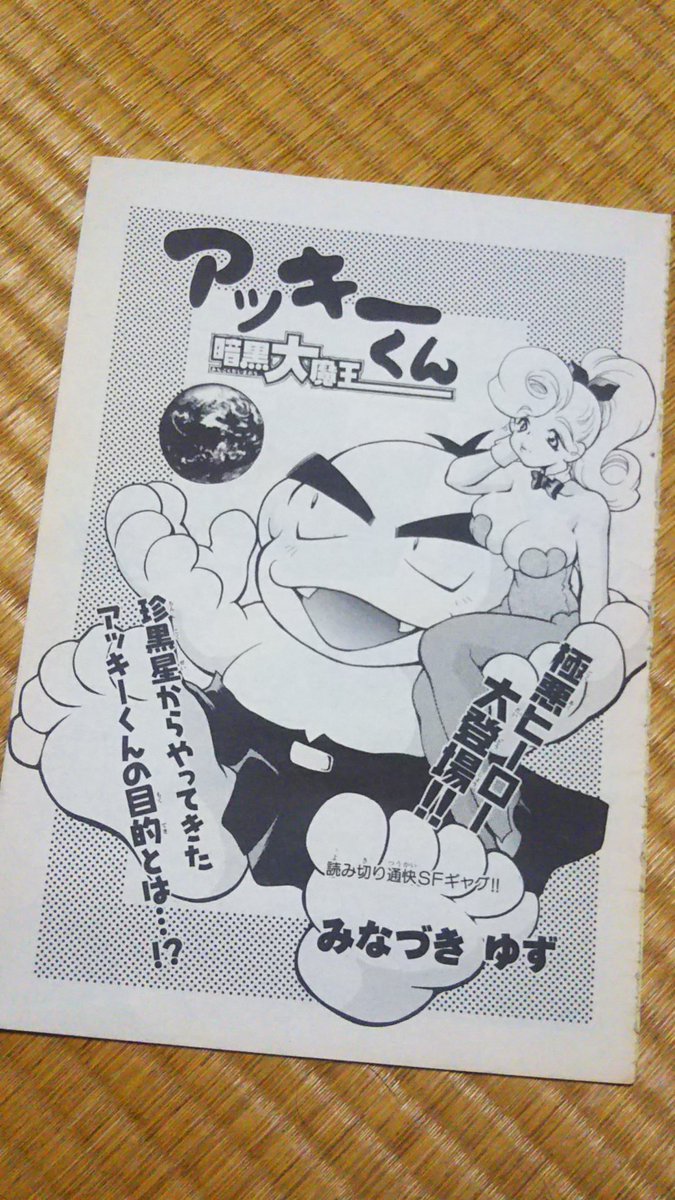 アッキーくん
暗黒大魔王
極悪ヒーロー
大登場!!
珍黒星からやってきた
アッキーくんの目的とは…!?
読み切り通快SFギャグ!!
みなづき ゆず